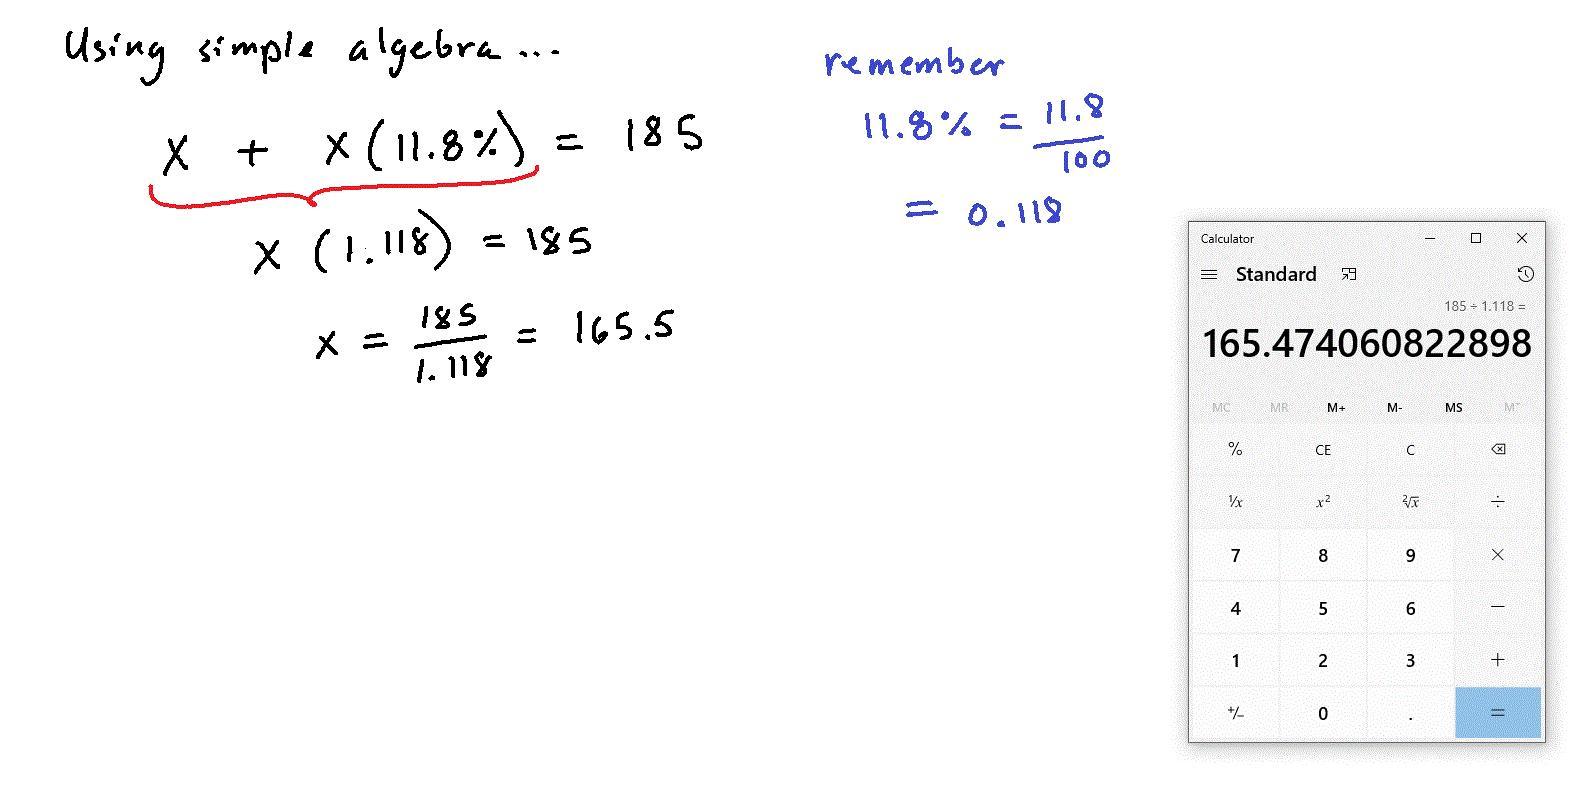 Using simple algebra...
x + x(11.8%) = 185
x (1.118) = 185
x = 185/1.118 = 165.5
remember
11.8% = 11.8/100
= 0.118
Calculator
Standard
185 ÷ 1.118 =
165.474060822898
MC MR M+ M- MS M˅
% CE C ⌫
¹/x x² ²√x ÷
7 8 9 ×
4 5 6 −
1 2 3 +
+/− 0 . =